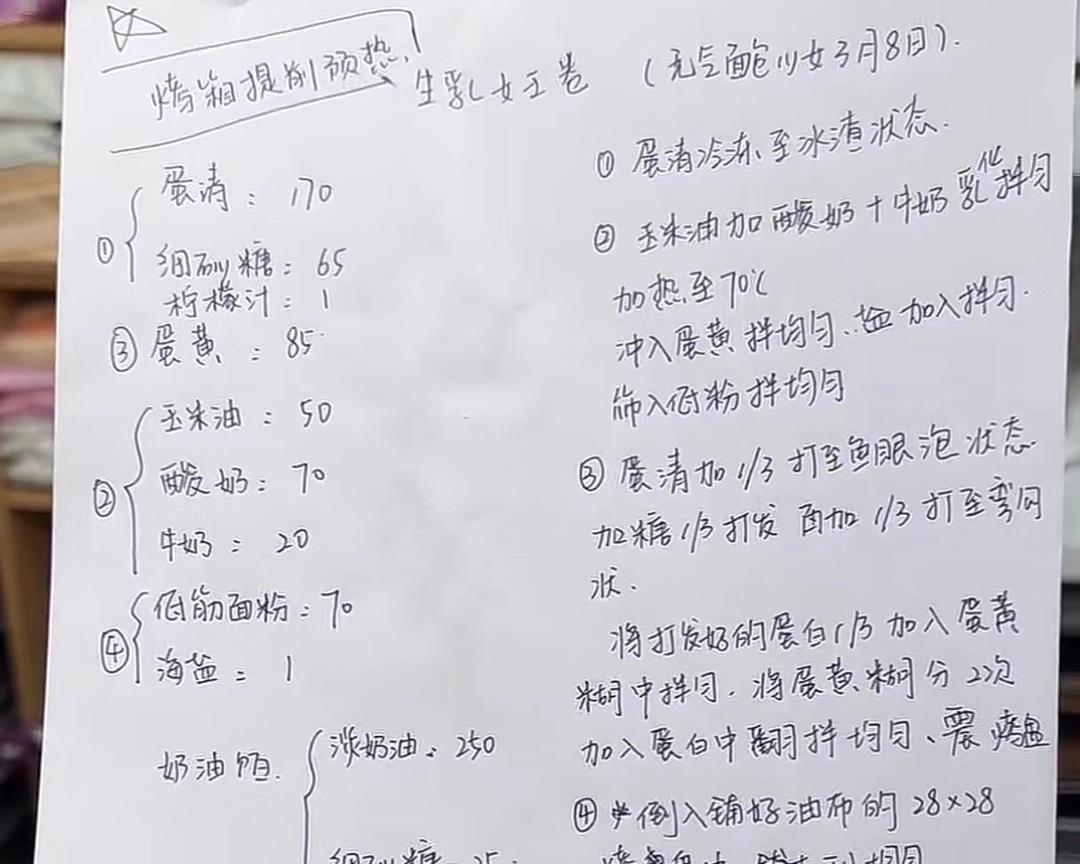 烤箱提前预热.
生乳女王卷 (元气面包少女3月8日).
① 蛋清: 170
细砂糖: 65
柠檬汁: 1
③ 蛋黄: 85
② 玉米油: 50
酸奶: 70
牛奶: 20
④ 低筋面粉: 70
海盐: 1
奶油馅. 淡奶油: 250
细砂糖 25
① 蛋清冷冻至冰渣状态.
② 玉米油加酸奶+牛奶乳化拌匀
加热至70℃
冲入蛋黄拌均匀、盐加入拌匀.
筛入低粉拌均匀
③ 蛋清加1/3打至鱼眼泡状态
加糖1/3打发 再加1/3打至弯勾
状.
将打发好的蛋白1/3加入蛋黄
糊中拌匀. 将蛋黄糊分2次
加入蛋白中翻拌均匀、震烤盘
④ 倒入铺好油布的28×28